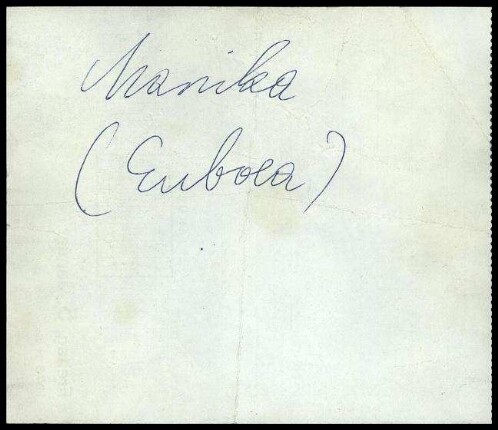 Manika
(Euboea)